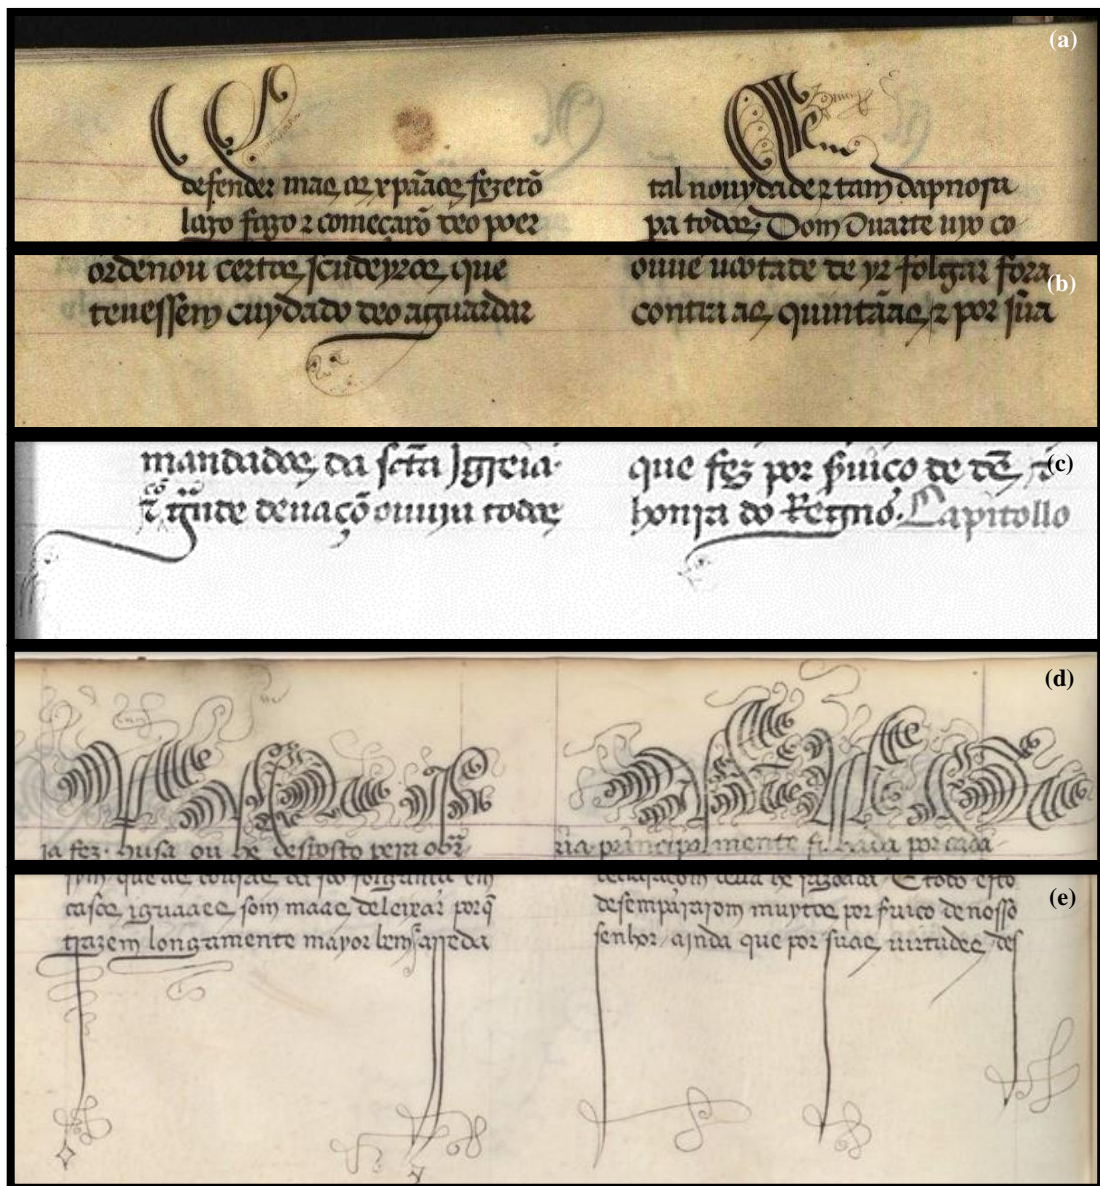 (a)
defender mas os xpãaos fezerõ
lago figo z começarõ deo poer
tal nouydade z tam dapnosa
pa todos. Dom Duarte uyo co
(b)
ordenou certos scudeyros que
teuessem cuydado deo aguardar
ouue uootade de yr folgar fora
contra as quintãas z por sũa
(c)
mandados da scťa Igreia.
deuaçõ ouuiu todas
que fez por de
honrra do Regno. Capitollo
(d)
ia fez. husa ou he desposto pera obr̃
ria principalmente filhada por cada
(e)
em
casos iguaaes som maas deleixar porq̃
trazem longamente mayor bemfarreda
E todo esto
desempararom muytos por suico de nosso
senhor ainda que por suas uirtudes des